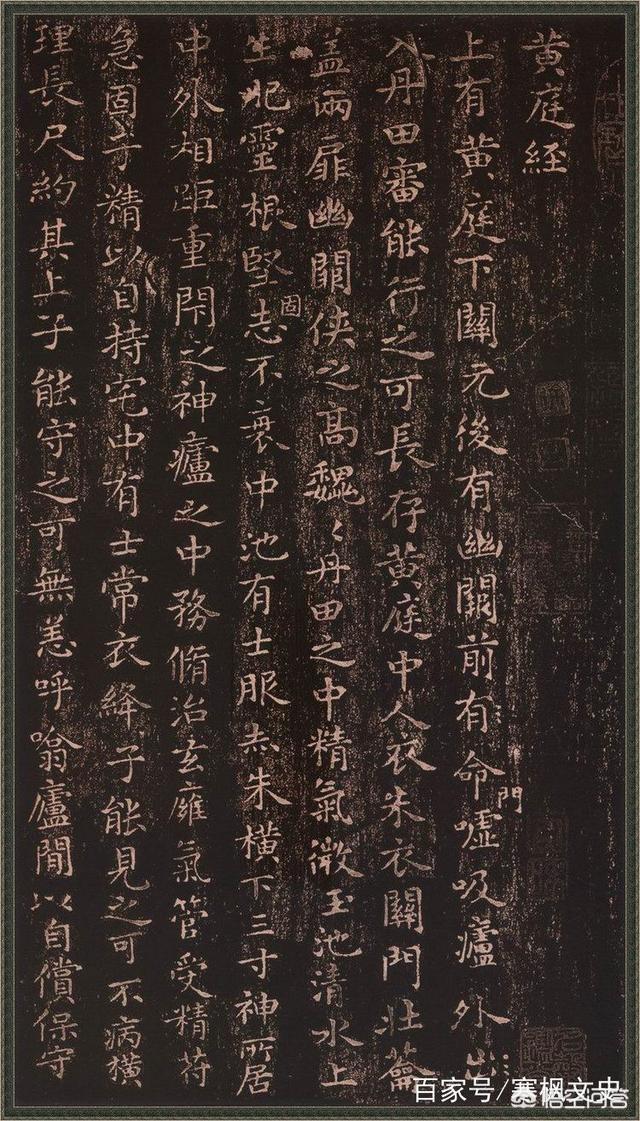 黄庭経
上有黄庭下關元後有幽闕前有命門嘘吸廬外出
入丹田審能行之可長存黄庭中人衣朱衣關門壮蘥
盖兩扉幽闕侠之高魏〻丹田之中精氣微玉池清水上
生肥靈根堅固志不衰中池有士服赤朱横下三寸神所居
中外相距重閇之神廬之中務脩治玄𤸫氣管受精苻
急固子精以自持宅中有士常衣絳子能見之可不病横
理長尺約其上子能守之可無恙呼噏廬閒以自償保守
百家号/寒枫文史
悟空问答